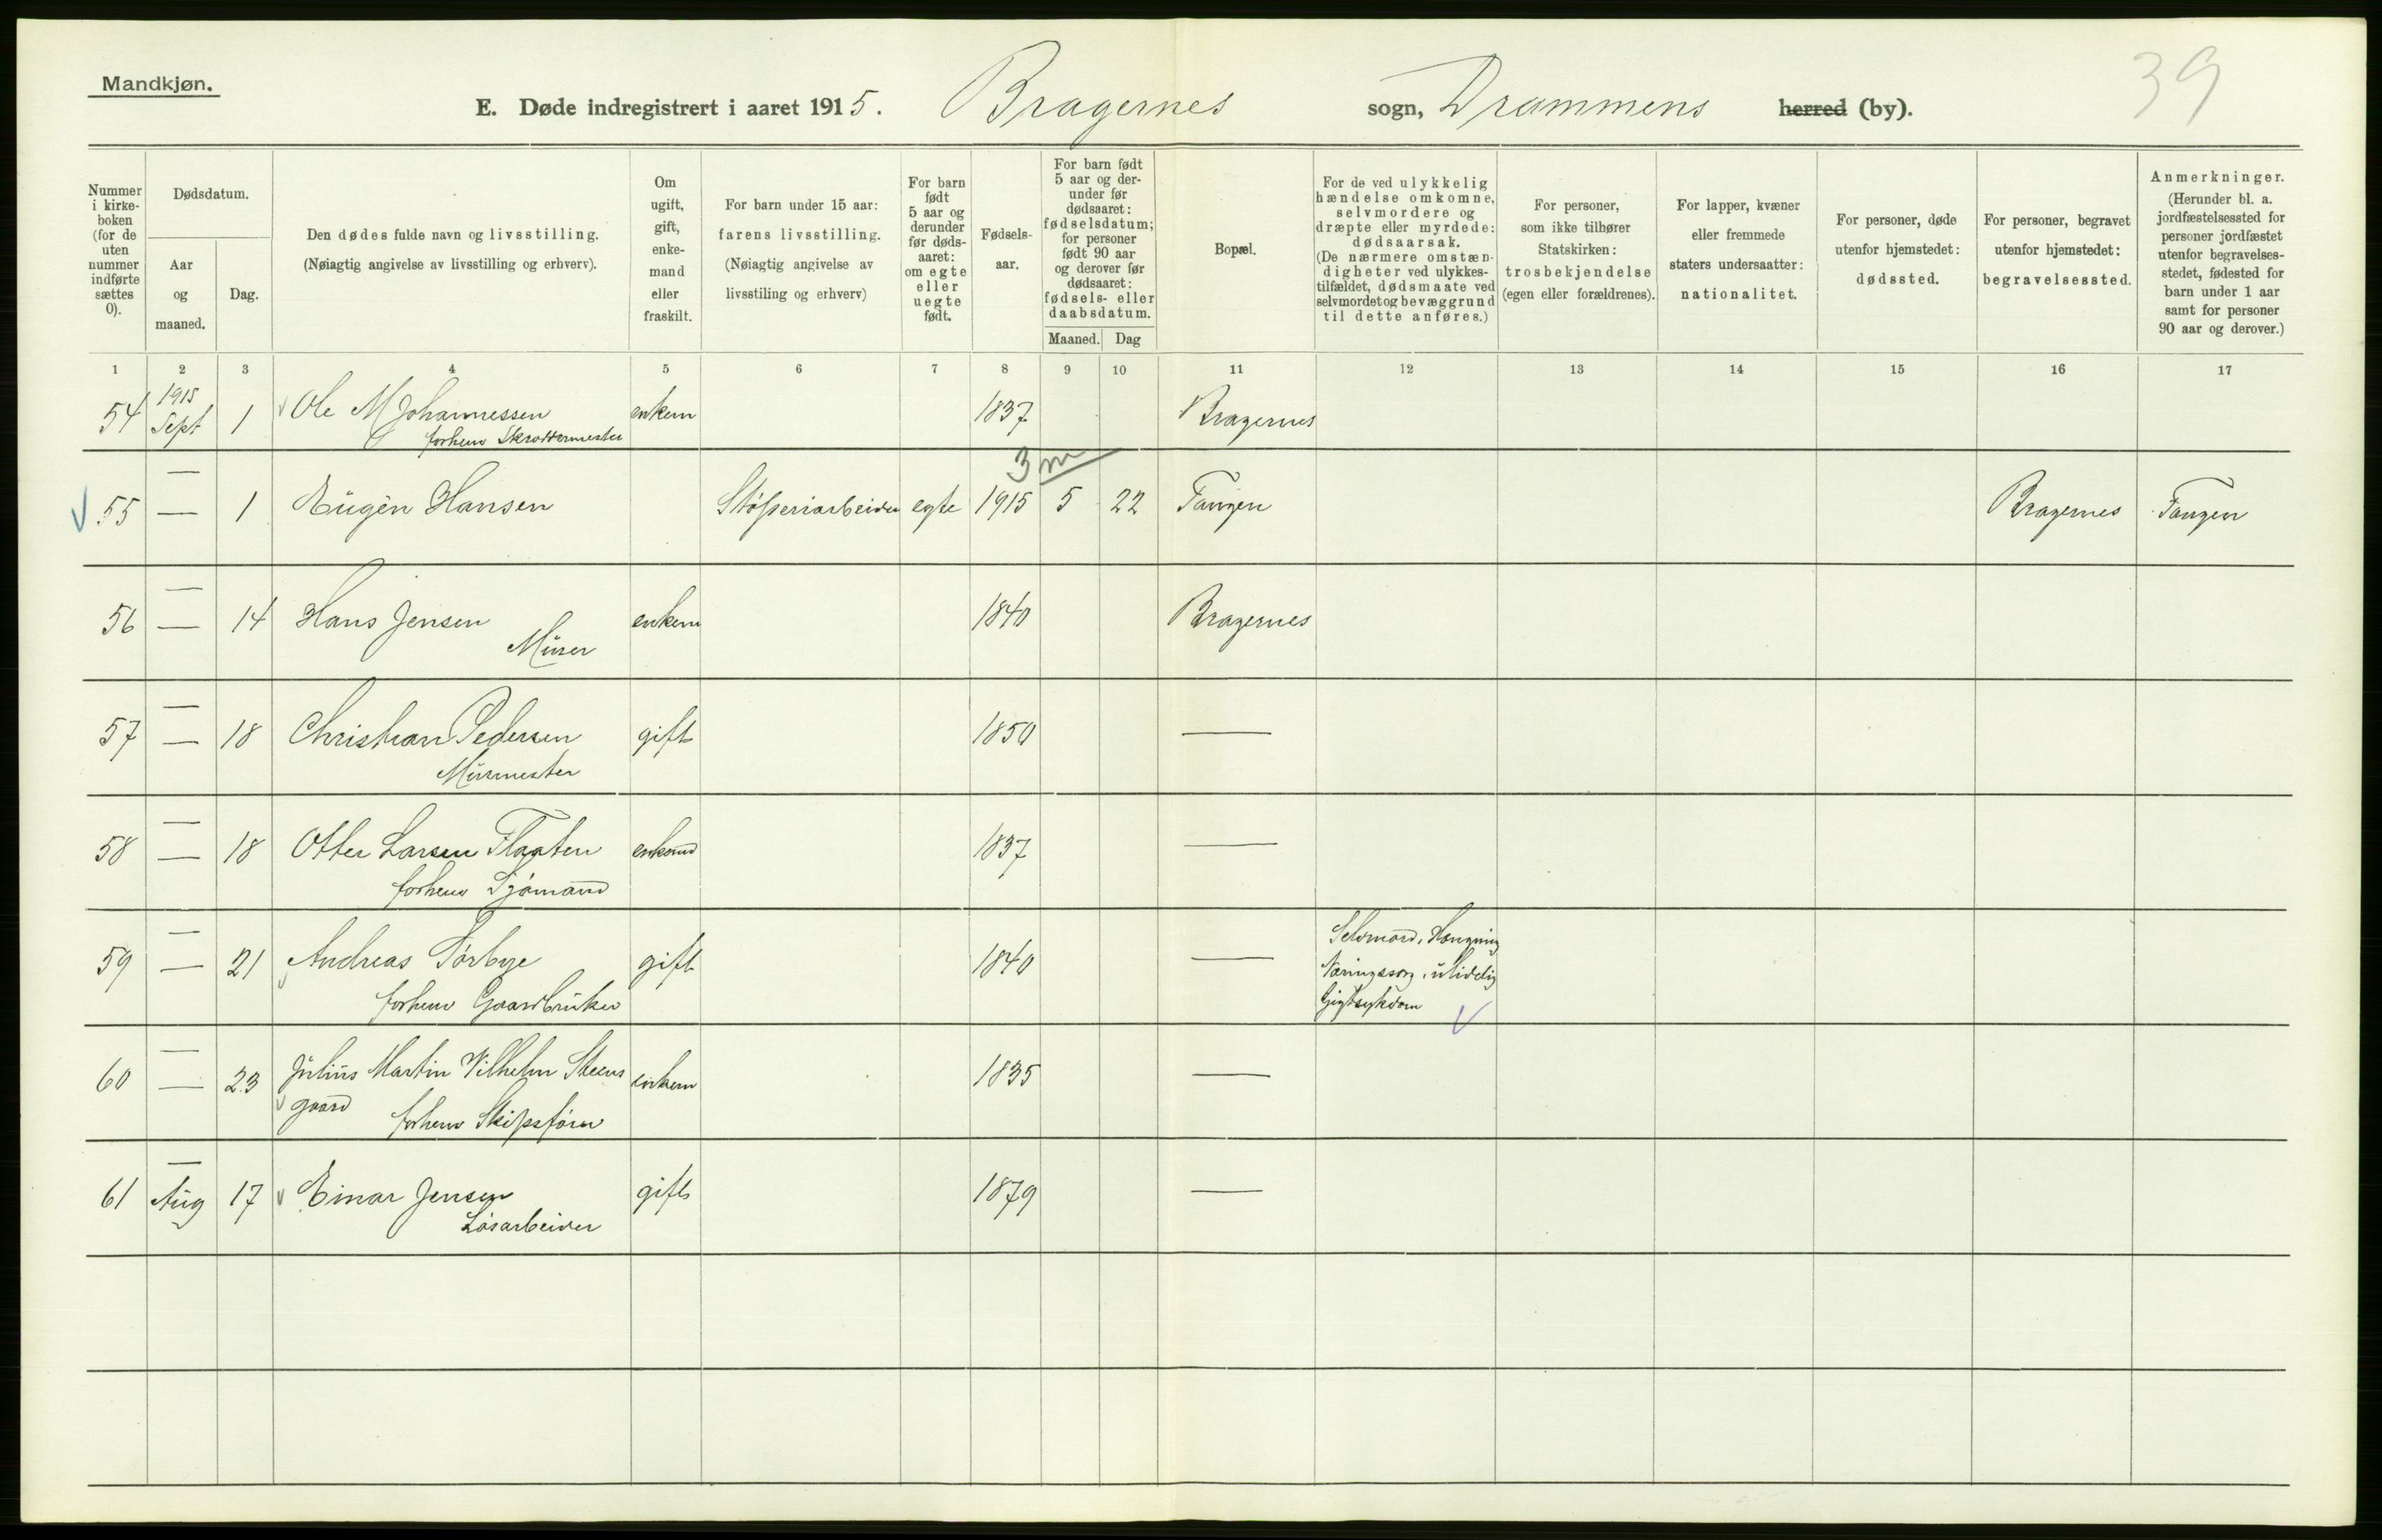 Mandkjøn.
39
E. Døde indregistrert i aaret 1915. Bragernes sogn, Drammens herred (by).
Nummer i kirke-boken (for de uten nummer indførte sættes 0).
Dødsdatum.
Aar og maaned.
Dag.
Den dødes fulde navn og livsstilling.
(Nøiagtig angivelse av livsstilling og erhverv).
Om ugift, gift, enke-mand eller fraskilt.
For barn under 15 aar: farens livsstilling.
(Nøiagtig angivelse av livsstiling og erhverv)
For barn født 5 aar og derunder før døds-aaret: om egte eller uegte født.
Fødsels-aar.
For barn født 5 aar og der-under før dødsaaret: fødselsdatum; for personer født 90 aar og derover før dødsaaret: fødsels- eller daabsdatum.
Maaned. Dag
Bopæl.
For de ved ulykkelig hændelse omkomne, selvmordere og dræpte eller myrdede: dødsaarsak.
(De nærmere omstæn-digheter ved ulykkes-tilfældet, dødsmaate ved selvmordet og bevæggrund til dette anføres.)
For personer, som ikke tilhører Statskirken: trosbekjendelse (egen eller forældrenes).
For lapper, kvæner eller fremmede staters undersaatter: nationalitet.
For personer, døde utenfor hjemstedet: dødssted.
For personer, begravet utenfor hjemstedet: begravelsessted.
Anmerkninger.
(Herunder bl. a. jordfæstelsessted for personer jordfæstet utenfor begravelses-stedet, fødested for barn under 1 aar samt for personer 90 aar og derover.)
1 2 3 4 5 6 7 8 9 10 11 12 13 14 15 16 17
54 1915 Sept 1 Ole M Johannessen enkem 1837 Bragernes
forhenv Skræddermester
3 m
55 — — 1 Eugèn Hansen Støperiarbeider egte 1915 5 22 Tangen Bragernes Tangen
56 — — 14 Hans Jensen enkem 1840 Bragernes
Murer
57 — — 18 Christian Pedersen gift 1850 —
Murmester
58 — — 18 Otter Larsen Flaaten enkemd 1837 —
forhenv Sjømand
59 — — 21 Andreas Sørbye gift 1840 — Selvmord, Hængning
Næringssorg, ulidelig
forhenv Gaardbruker Gigtsykdom
60 — — 23 Julius Martin Vilhelm Steens enkem 1835 —
gaard forhenv Skipsfører
61 — Aug 17 Einar Jensen gift 1879 —
Løsarbeider